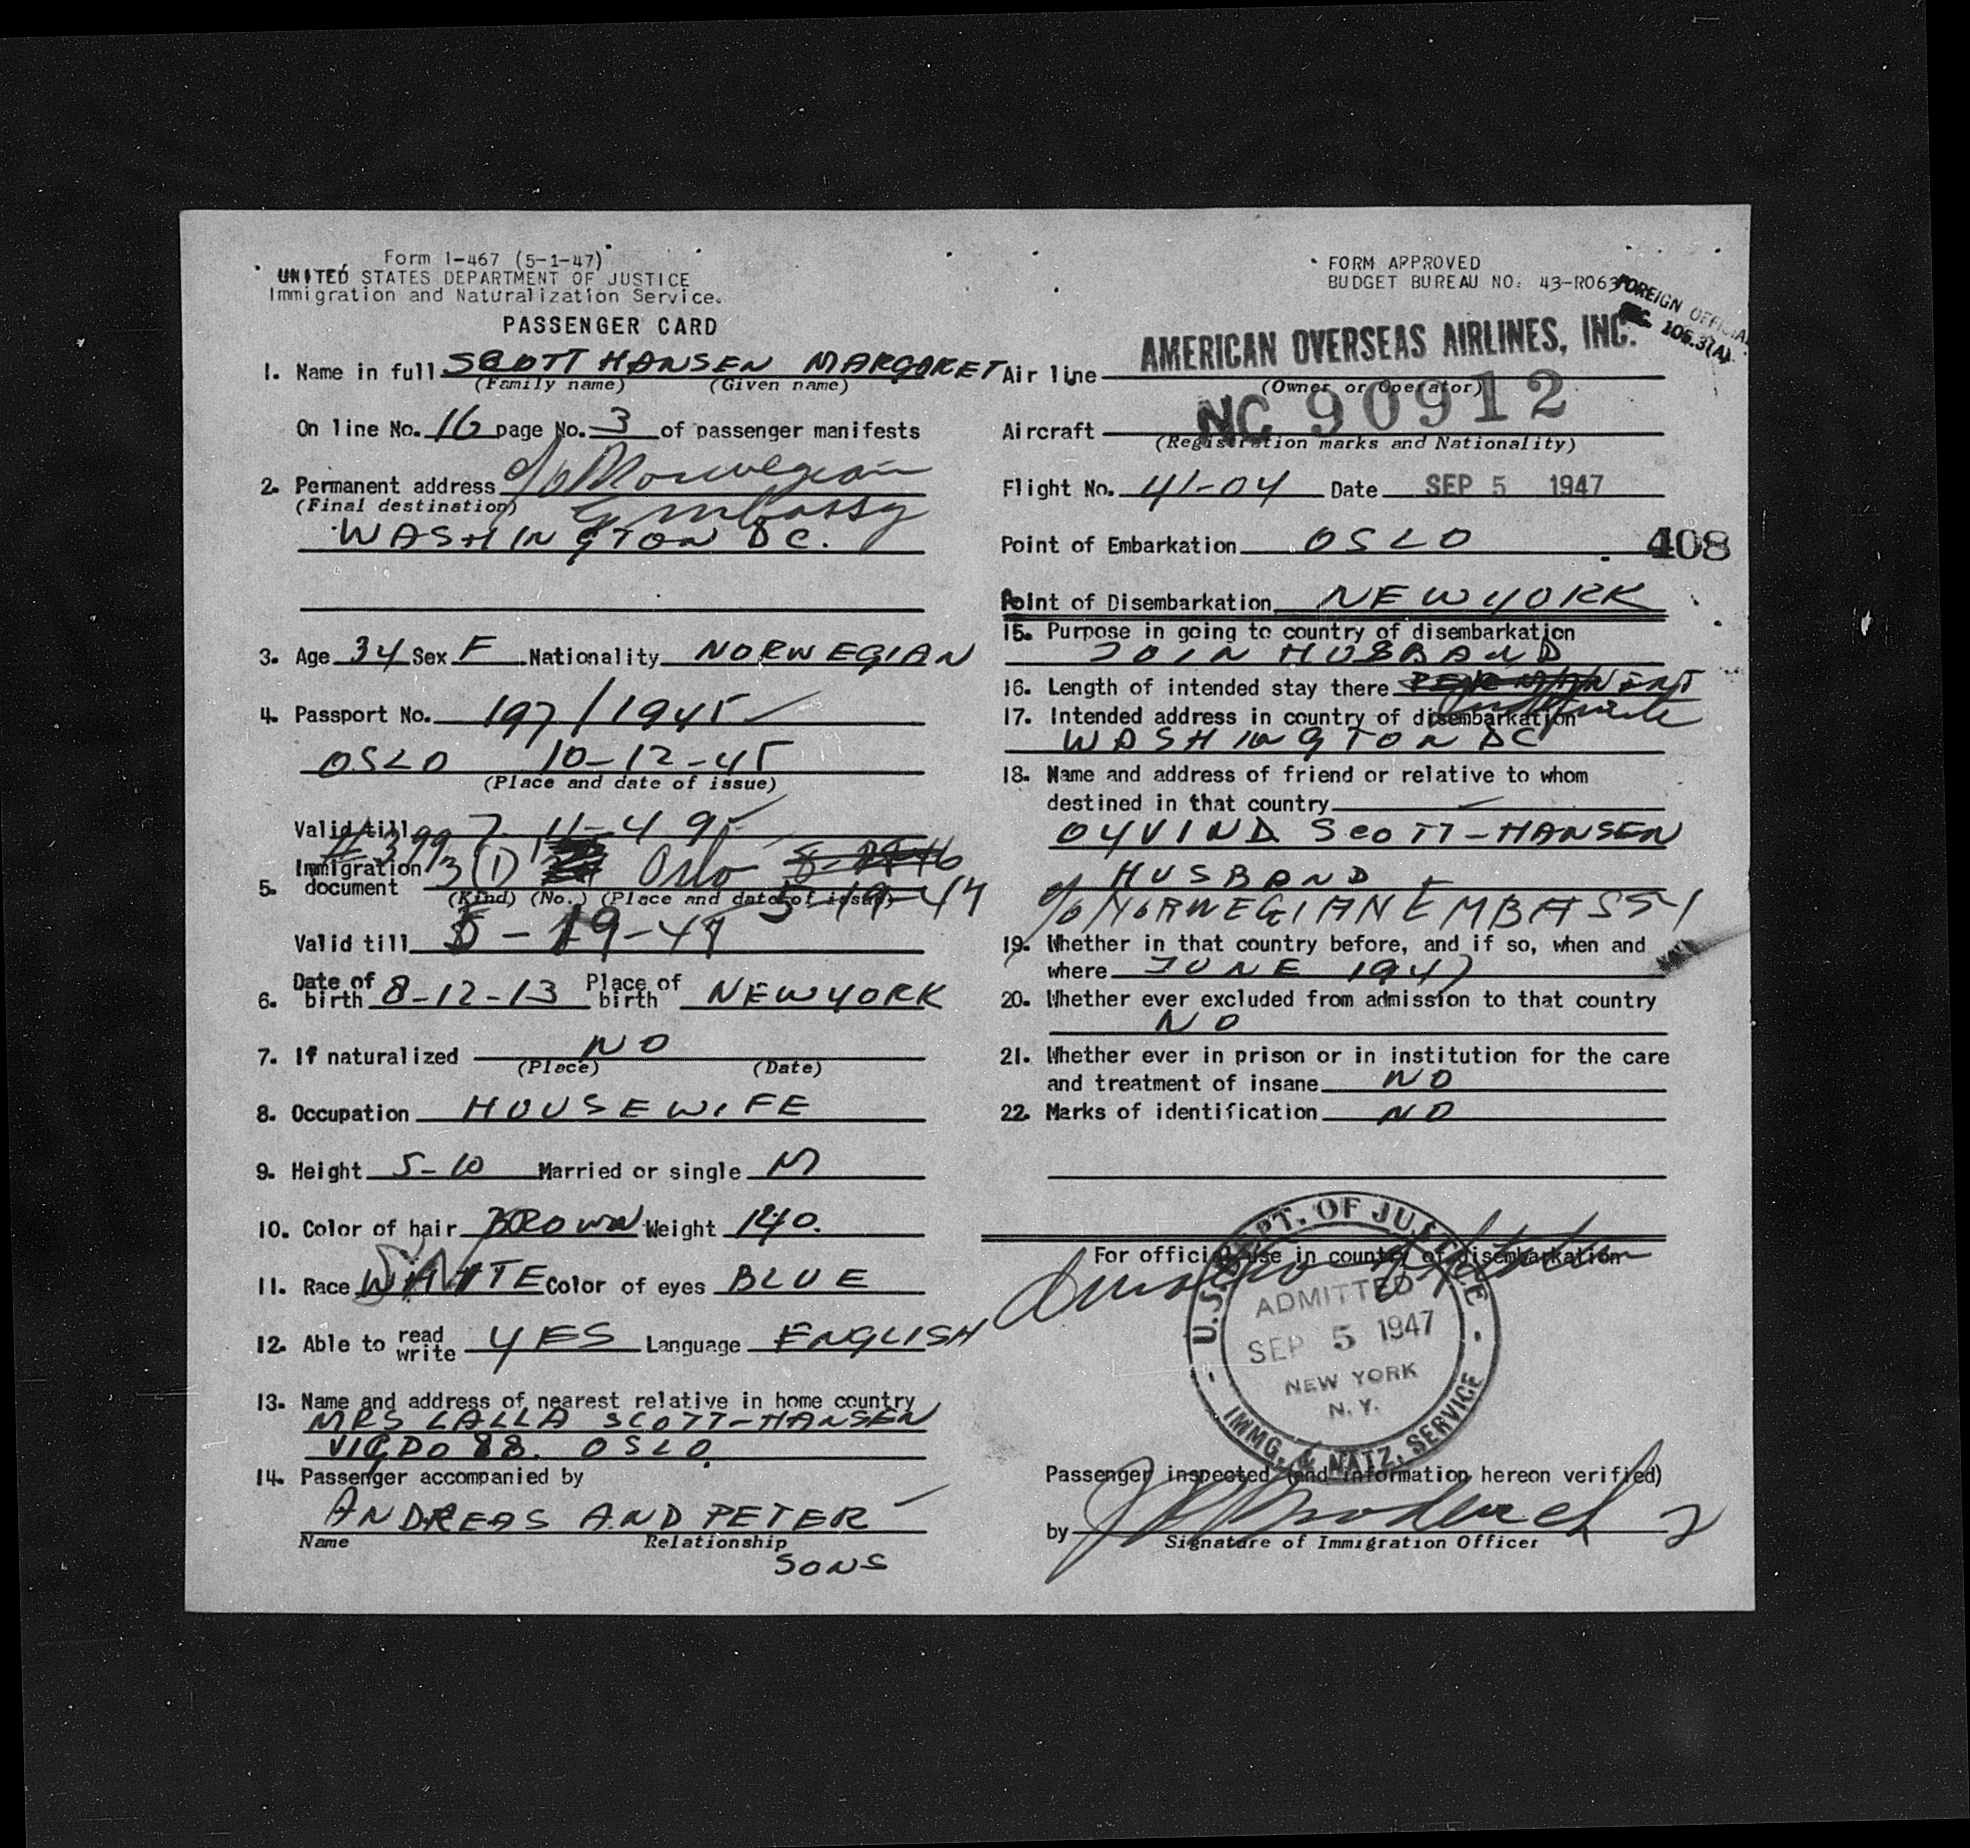 Form I-467 (5-1-47)
UNITED STATES DEPARTMENT OF JUSTICE
Immigration and Naturalization Service.
PASSENGER CARD
1. Name in full SCOTT HANSEN MARGARET
(Family name) (Given name)
On line No. 16 page No. 3 of passenger manifests
2. Permanent address c/o Norwegian
(Final destination) Embassy
WASHINGTON DC.
3. Age 34 Sex F Nationality NORWEGIAN
4. Passport No. 197/1945
OSLO 10-12-45
(Place and date of issue)
Valid till 7-11-49
# 399
5. Immigration document 3(1) Oslo
(Kind) (No.) (Place and date of issue) 5-19-47
Valid till 5-19-49
6. Date of birth 8-12-13 Place of birth NEW YORK
7. If naturalized NO
(Place) (Date)
8. Occupation HOUSEWIFE
9. Height 5-10 Married or single M
10. Color of hair BROWN Weight 140.
11. Race WHITE Color of eyes BLUE
12. Able to read write YES Language ENGLISH
13. Name and address of nearest relative in home country
MRS LALLA SCOTT-HANSEN
88. OSLO
14. Passenger accompanied by
ANDREAS AND PETER
Name Relationship
SONS
FORM APPROVED
BUDGET BUREAU NO. 43-R063
FOREIGN OFFICIAL
SEC. 106.3(A)
Air line AMERICAN OVERSEAS AIRLINES, INC.
(Owner or Operator)
Aircraft NC 90912
(Registration marks and Nationality)
Flight No. 41-04 Date SEP 5 1947
Point of Embarkation OSLO
408
Point of Disembarkation NEW YORK
15. Purpose in going to country of disembarkation
JOIN HUSBAND
16. Length of intended stay there PERMANENT
Indefinite
17. Intended address in country of disembarkation
WASHINGTON DC
18. Name and address of friend or relative to whom
destined in that country
OYVIND SCOTT-HANSEN
HUSBAND
c/o NORWEGIAN EMBASSY
19. Whether in that country before, and if so, when and
where JUNE 1947
20. Whether ever excluded from admission to that country
NO
21. Whether ever in prison or in institution for the care
and treatment of insane NO
22. Marks of identification NO
For official use in country of disembarkation
U.S. DEPT. OF JUSTICE
ADMITTED
SEP 5 1947
NEW YORK
N.Y.
IMMG. & NATZ. SERVICE
Passenger inspected (and information hereon verified)
by
Signature of Immigration Officer